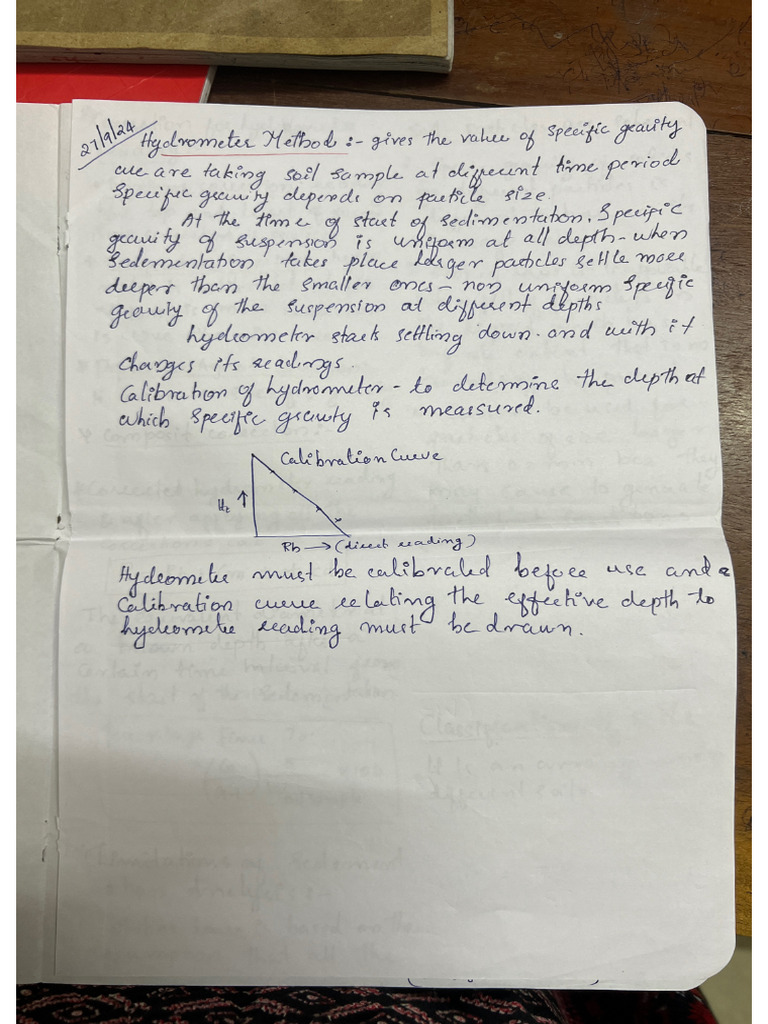 27/9/24
Hydrometer Method :- gives the value of specific gravity
we are taking soil sample at different time period
Specific gravity depends on particle size.
At the time of start of sedimentation, Specific
gravity of suspension is uniform at all depth - when
Sedementation takes place larger particles settle more
deeper than the smaller ones - non uniform specific
gravity of the suspension at different depths
hydrometer starts settling down and with it
changes its readings.
Calibration of hydrometer - to determine the depth at
which specific gravity is meassured.
Calibration Curve
↑
Rh → (direct reading)
Hydrometer must be calibrated before use and a
Calibration curve relating the effective depth to
hydrometer reading must be drawn.